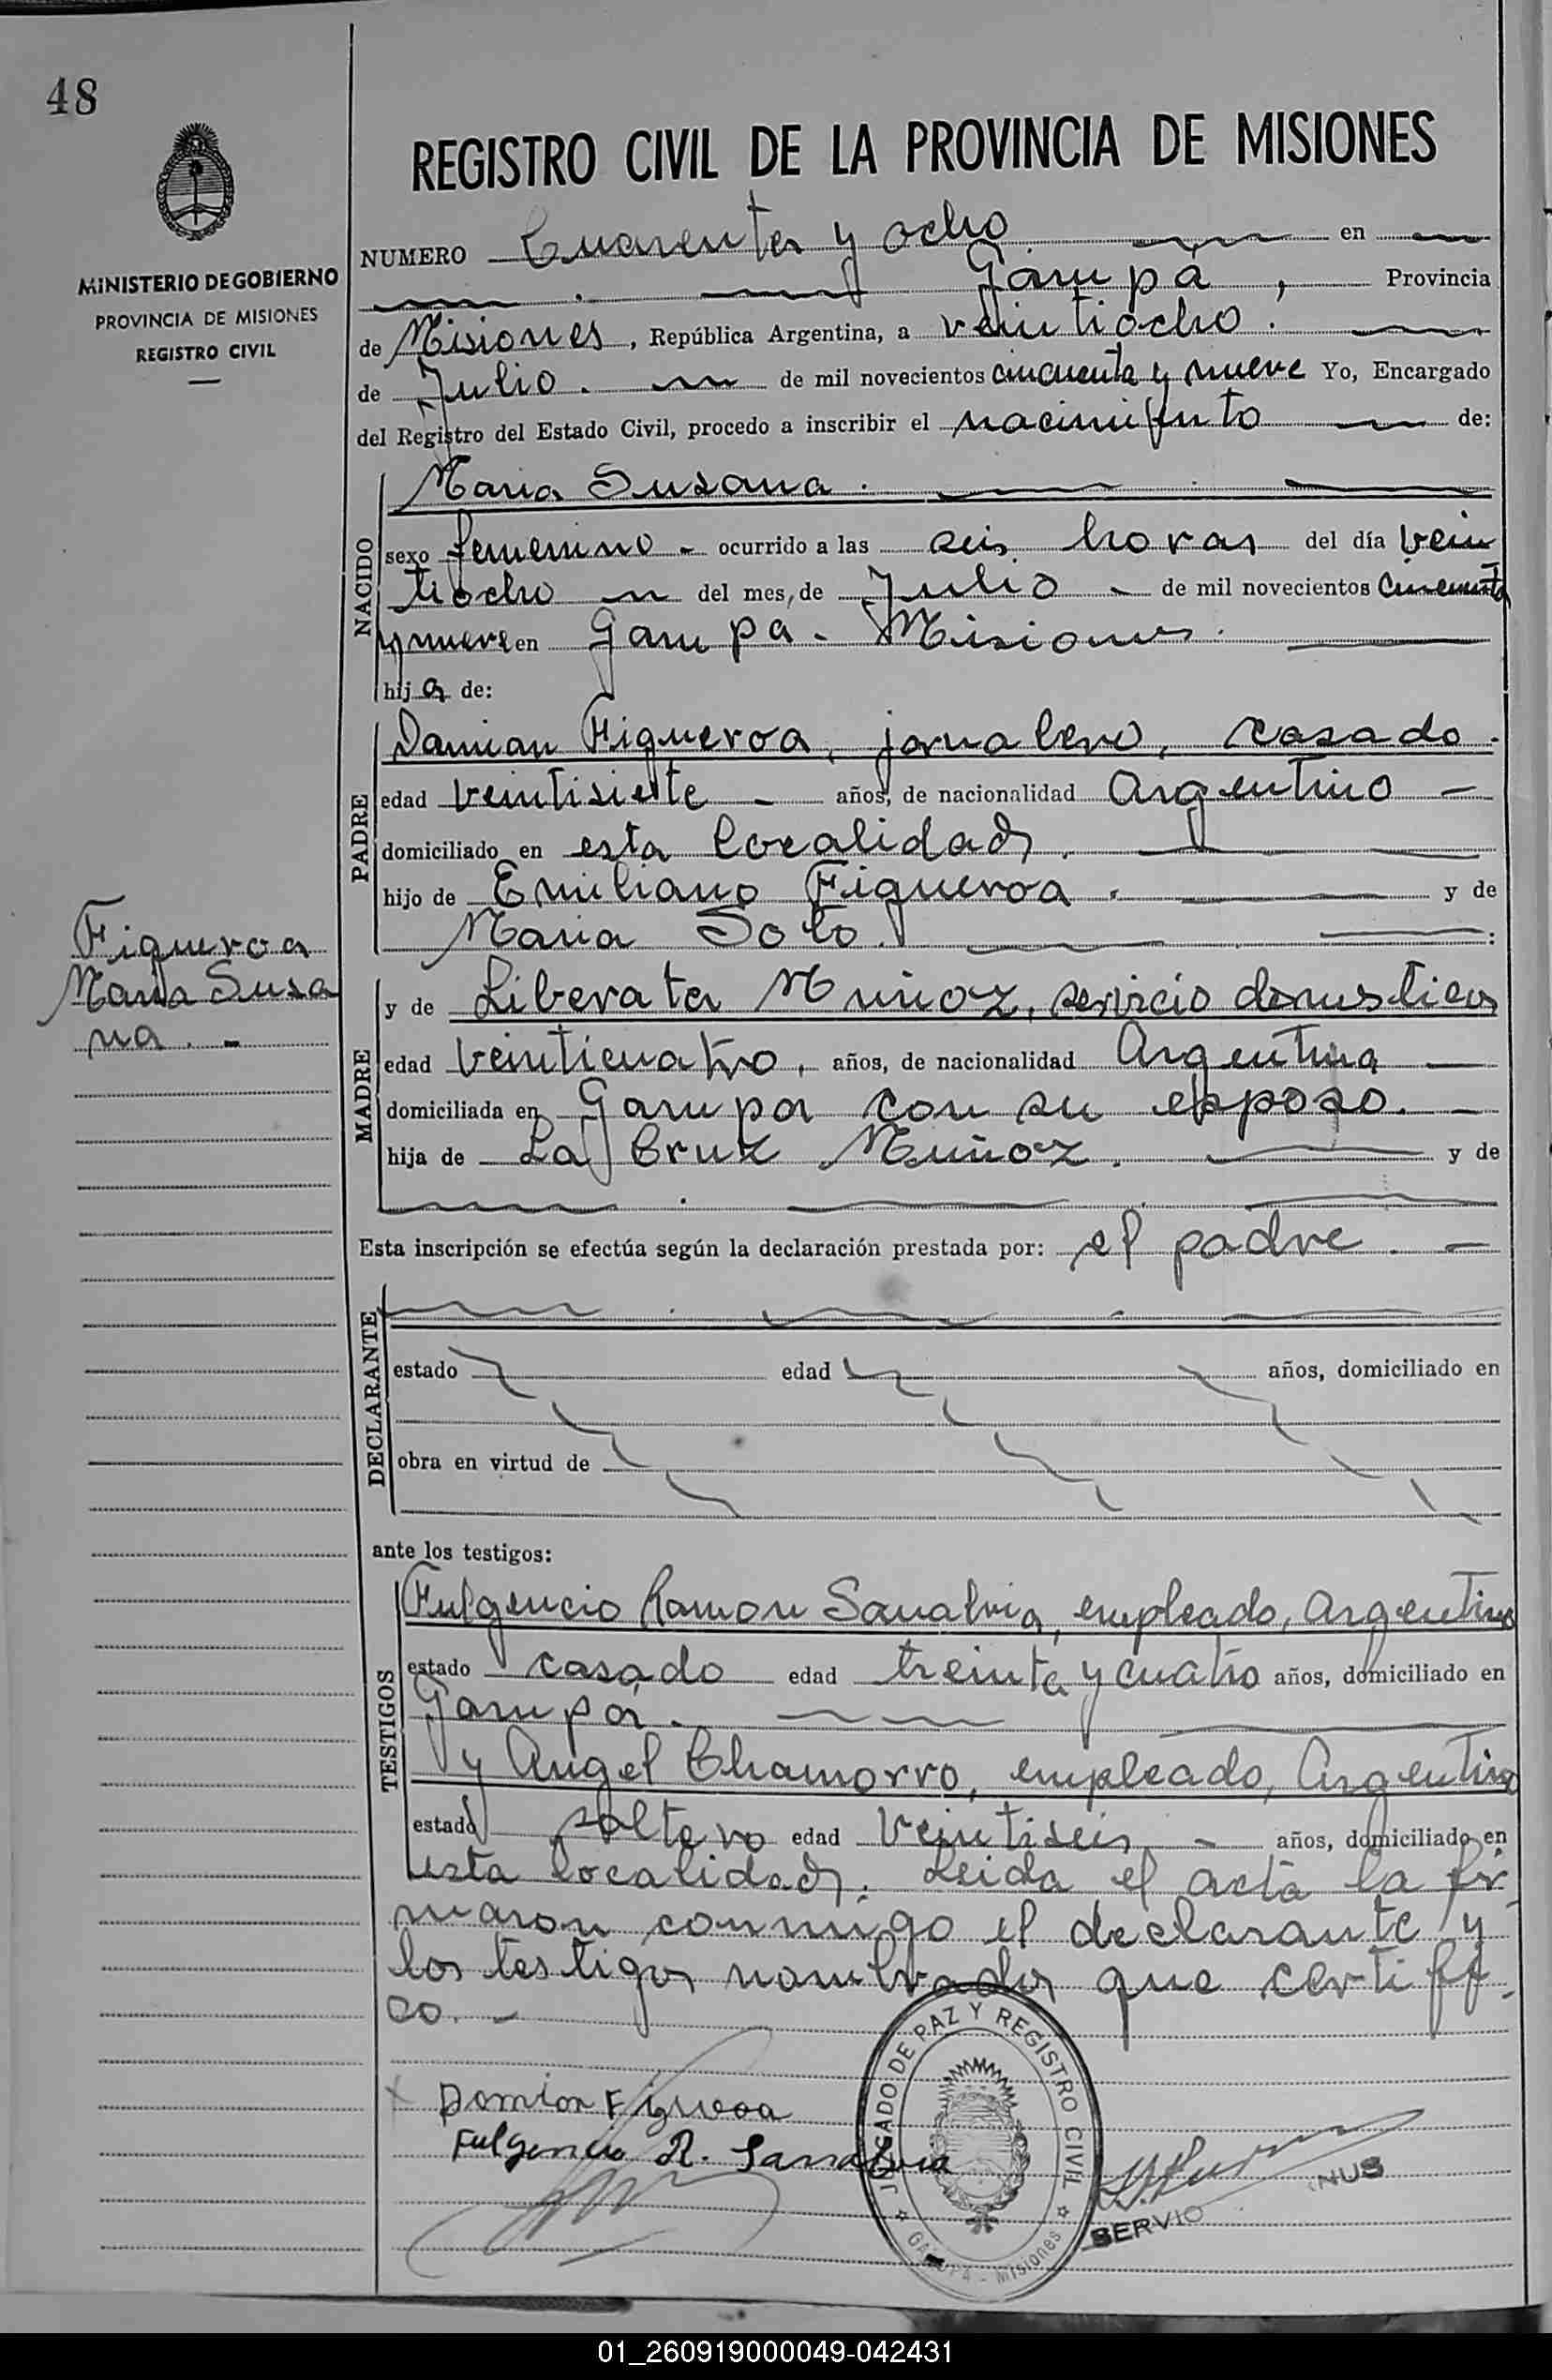 48
MINISTERIO DE GOBIERNO
PROVINCIA DE MISIONES
REGISTRO CIVIL
REGISTRO CIVIL DE LA PROVINCIA DE MISIONES
NUMERO Cuarenta y ocho en
Garupá, Provincia
de Misiones, República Argentina, a veintiocho.
de Julio. de mil novecientos cincuenta y nueve Yo, Encargado
del Registro del Estado Civil, procedo a inscribir el nacimiento de:
NACIDO
Maria Susana.
sexo femenino - ocurrido a las seis horas del día vein
tiocho del mes, de Julio - de mil novecientos cincuenta
y nueve en Garupa - Misiones.
hija de:
PADRE
Damian Figueroa, jornalero, casado.
edad veintisiete - años, de nacionalidad Argentino -
domiciliado en esta localidad.
hijo de Emiliano Figueroa. y de
Maria Soto. :
Figueroa
Maria Susa
na. -
MADRE
y de Liberata Muñoz, servicio domesticos
edad veinticuatro, años, de nacionalidad Argentina
domiciliada en Garupa con su esposo. -
hija de La Cruz Muñoz. y de
Esta inscripción se efectúa según la declaración prestada por: el padre. -
DECLARANTE
estado edad años, domiciliado en
obra en virtud de
ante los testigos:
TESTIGOS
Fulgencio Ramon Sanabria, empleado, Argentino
estado casado edad treinta y cuatro años, domiciliado en
Garupá.
y Angel Chamorro, empleado, Argentino
estado soltero edad veintiseis - años, domiciliado en
esta localidad. Leida el acta la fir
maron conmigo el declarante y
los testigos nombrados que certifi
co. -
JUZGADO DE PAZ Y REGISTRO CIVIL
GARUPA - Misiones
Domian Figueroa
Fulgencio R. Sanabria
SERVIO
01_260919000049-042431